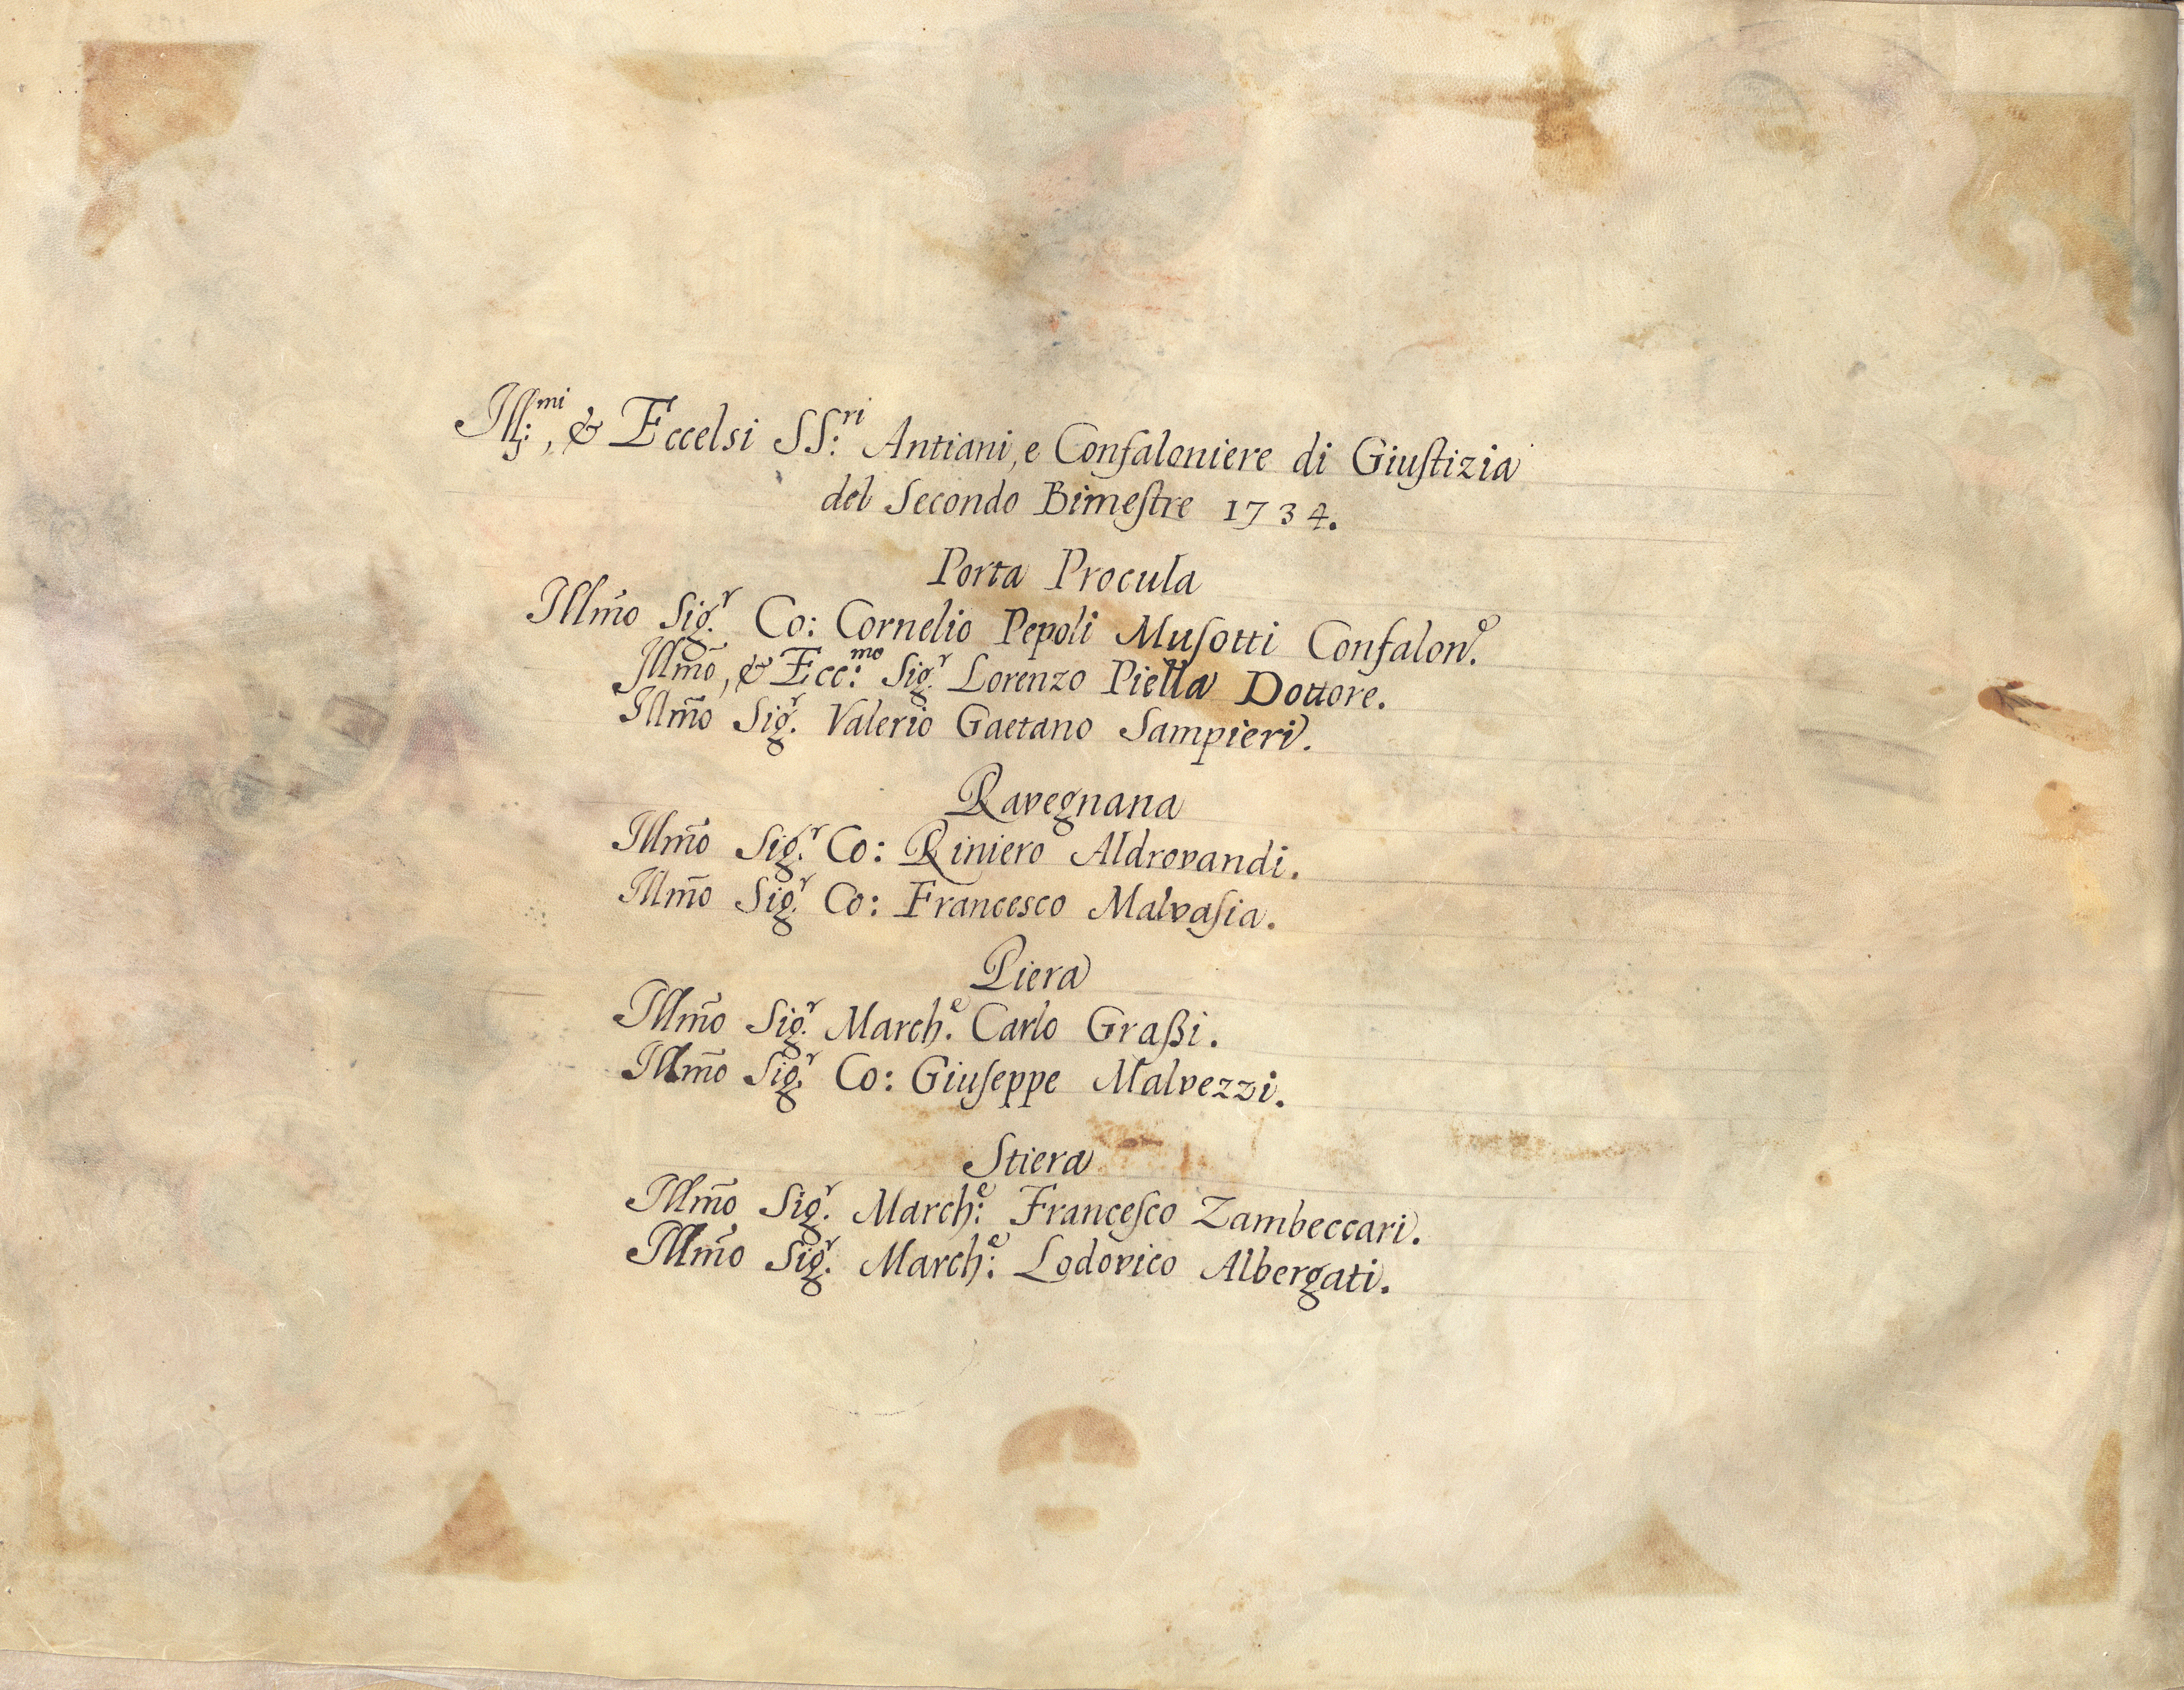 Ill:mi, & Eccelsi SS:ri Antiani, e Confaloniere di Giuſtizia
del Secondo Bimeſtre 1734.
Porta Procula
Illm̃o Sig.r Co: Cornelio Pepoli Muſotti Confalon.e
Illm̃o, & Ecc:mo Sig.r Lorenzo Piella Dottore.
Illm̃o Sig.r Valerio Gaetano Sampieri.
Ravegnana
Illm̃o Sig.r Co: Riniero Aldrovandi.
Illm̃o Sig.r Co: Francesco Malvaſia.
Piera
Illm̃o Sig.r March.e Carlo Graßi.
Illm̃o Sig.r Co: Giuſeppe Malvezzi.
Stiera
Illm̃o Sig.r March:e Franceſco Zambeccari.
Illm̃o Sig.r March:e Lodovico Albergati.